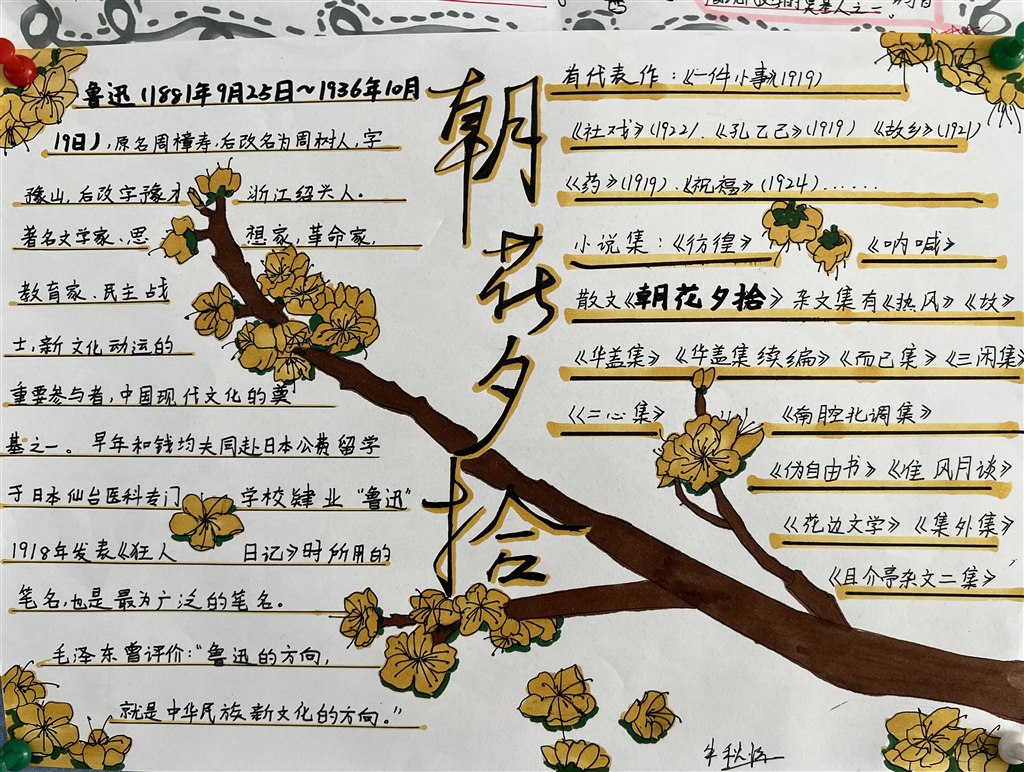 鲁迅(1881年9月25日~1936年10月
19日),原名周樟寿,后改名为周树人,字
豫山,后改字豫才 浙江绍兴人.
著名文学家、思 想家,革命家,
教育家、民主战
士,新文化动运的
重要参与者,中国现代文化的奠
基之一。早年和钱均夫同赴日本公费留学
于日本仙台医科专门 学校肄业“鲁迅”
1918年发表《狂人 日记》时所用的
笔名,也是最为广泛的笔名。
毛泽东曾评价:“鲁迅的方向,
就是中华民族新文化的方向。”
朝花夕拾
有代表作:《一件小事》(1919)
《社戏》(1922)、《孔乙己》(1919) 《故乡》(1921)
《药》(1919)、《祝福》(1924)......
小说集:《彷徨》 《呐喊》
散文《朝花夕拾》杂文集有《热风》《坟》
《华盖集》《华盖集续编》《而已集》《三闲集》
《二心集》 《南腔北调集》
《伪自由书》《准风月谈》
《花边文学》《集外集》
《且介亭杂文二集》